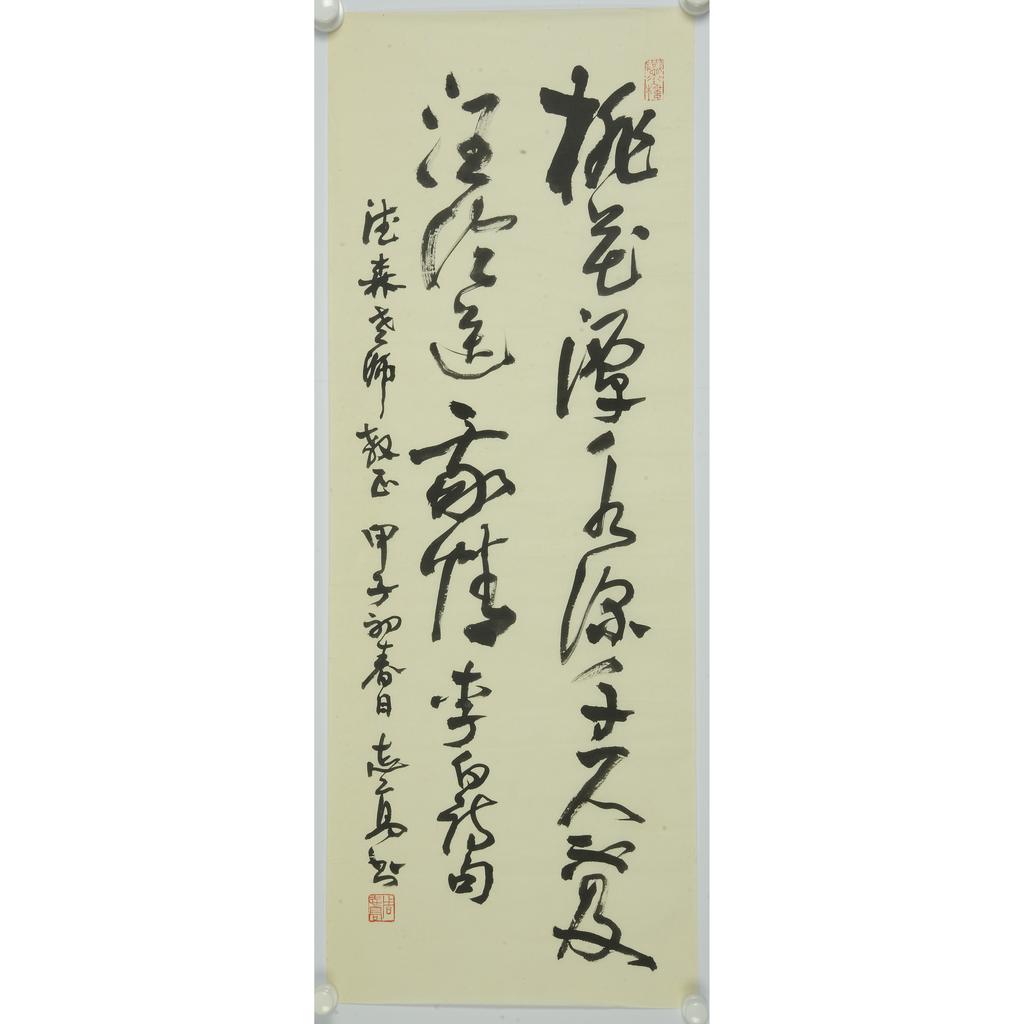 桃花潭水深千尺不及
汪伦送我情 李白诗句
德森老师教正 甲子初春日 志高书
周志高